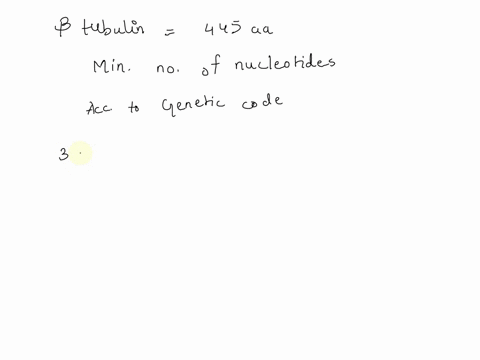 β tubulin = 445 aa
Min. no. of nucleotides
Acc to Genetic code
3